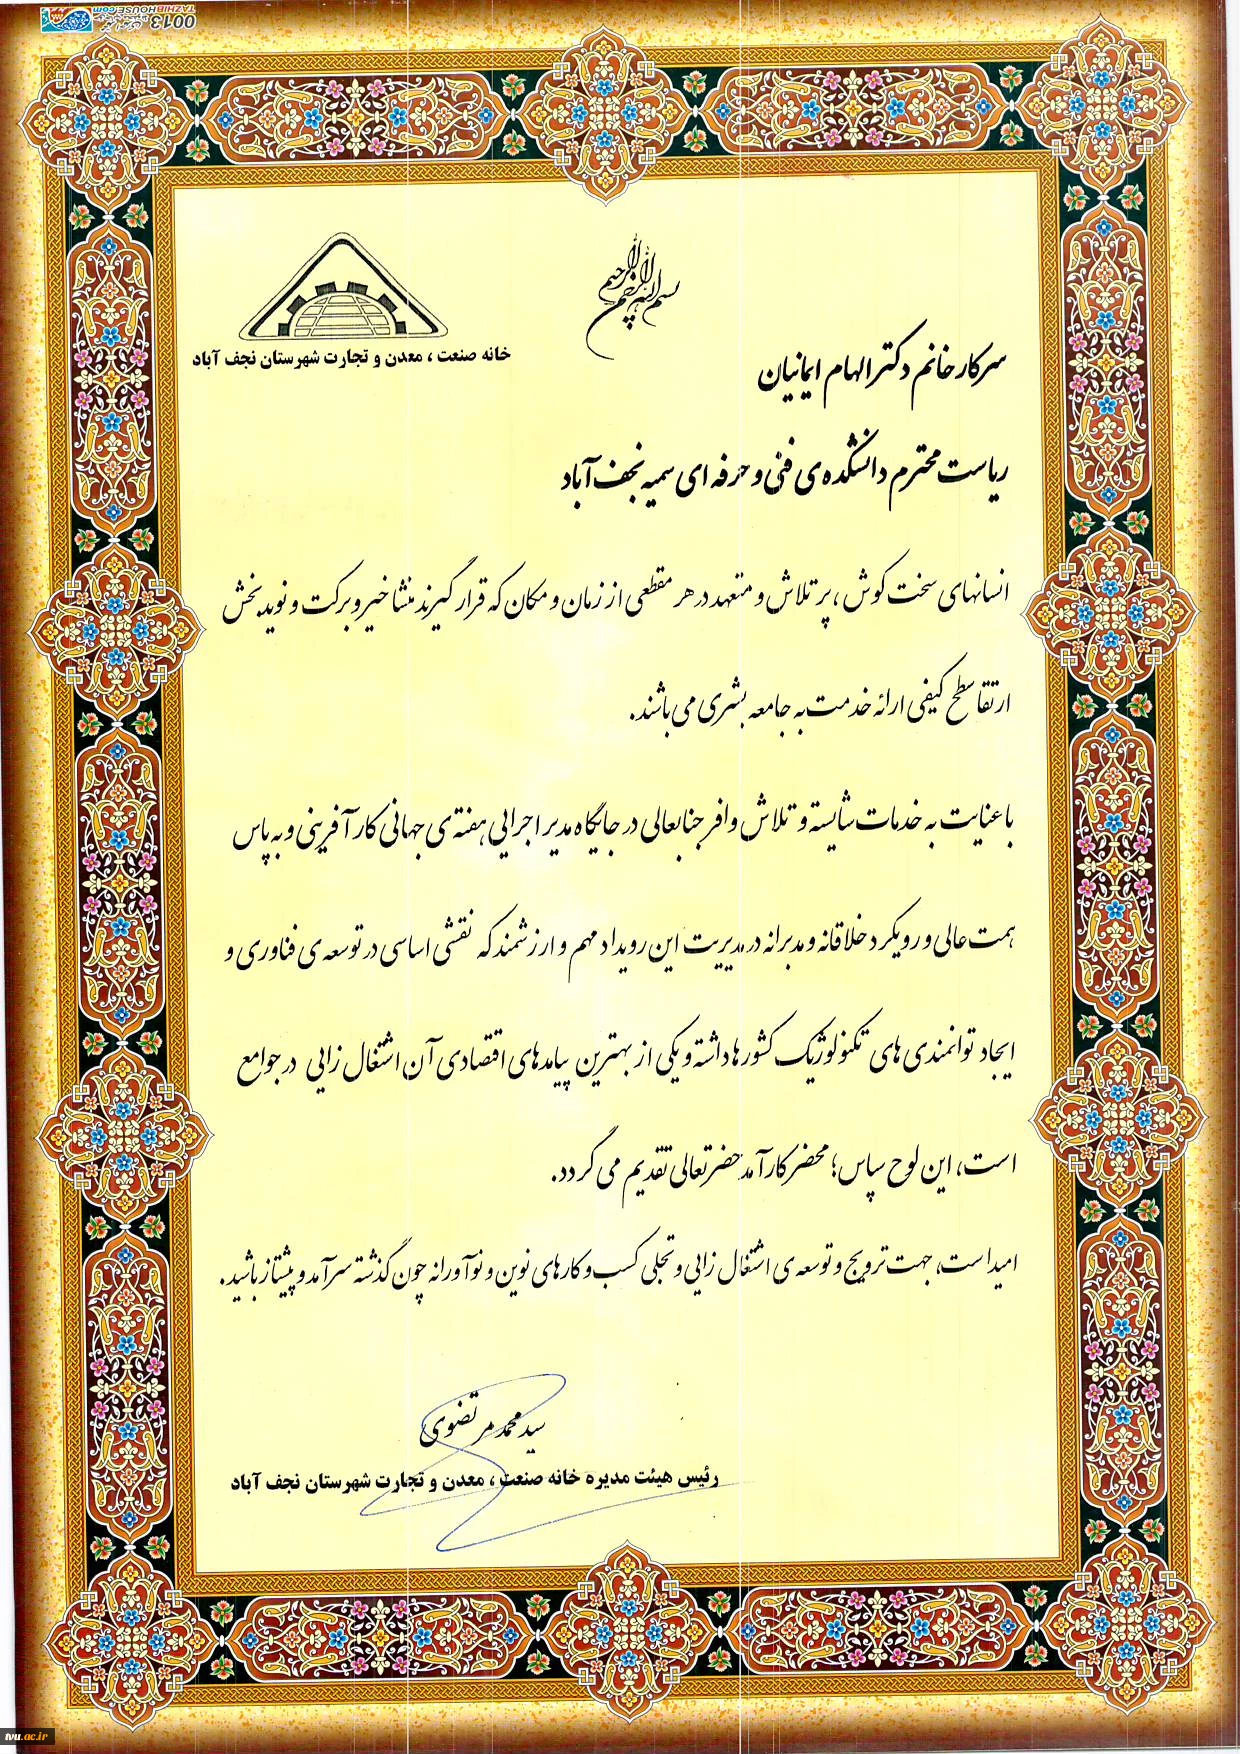 TAZHIBHOUSE.com
0013
بسم الله الرحمن الرحیم
خانه صنعت ، معدن و تجارت شهرستان نجف آباد
سرکار خانم دکتر الهام ایمانیان
ریاست محترم دانشکده ی فنی و حرفه ای سمیه نجف آباد
انسانهای سخت کوش ، پر تلاش و متعهد در هر مقطعی از زمان و مکان که قرار گیرند منشا خیر و برکت و نوید بخش
ارتقا سطح کیفی ارائه خدمت به جامعه بشری می باشند.
با عنایت به خدمات شایسته و تلاش وافر جنابعالی در جایگاه مدیر اجرایی هفته ی جهانی کارآفرینی و به پاس
همت عالی و رویکرد خلاقانه و مدبرانه در مدیریت این رویداد مهم و ارزشمند که نقشی اساسی در توسعه ی فناوری و
ایجاد توانمندی های تکنولوژیک کشورها داشته و یکی از بهترین پیامدهای اقتصادی آن اشتغال زایی در جوامع
است، این لوح سپاس؛ محضر کارآمد حضرتعالی تقدیم می گردد.
امید است، جهت ترویج و توسعه ی اشتغال زایی و تجلی کسب و کارهای نوین و نوآورانه چون گذشته سرآمد و پیشتاز باشید.
سید محمد مرتضوی
رئیس هیئت مدیره خانه صنعت ، معدن و تجارت شهرستان نجف آباد
tvu.ac.ir